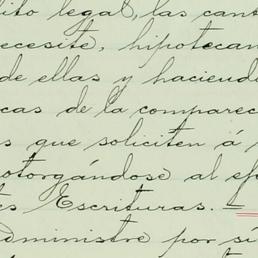 ito legal, las cant
ecesite, hipotecan
de ellas y haciend
cas de la comparec
s que soliciten á
otorgándose al ef
tes Escrituras. —
dministre por sí